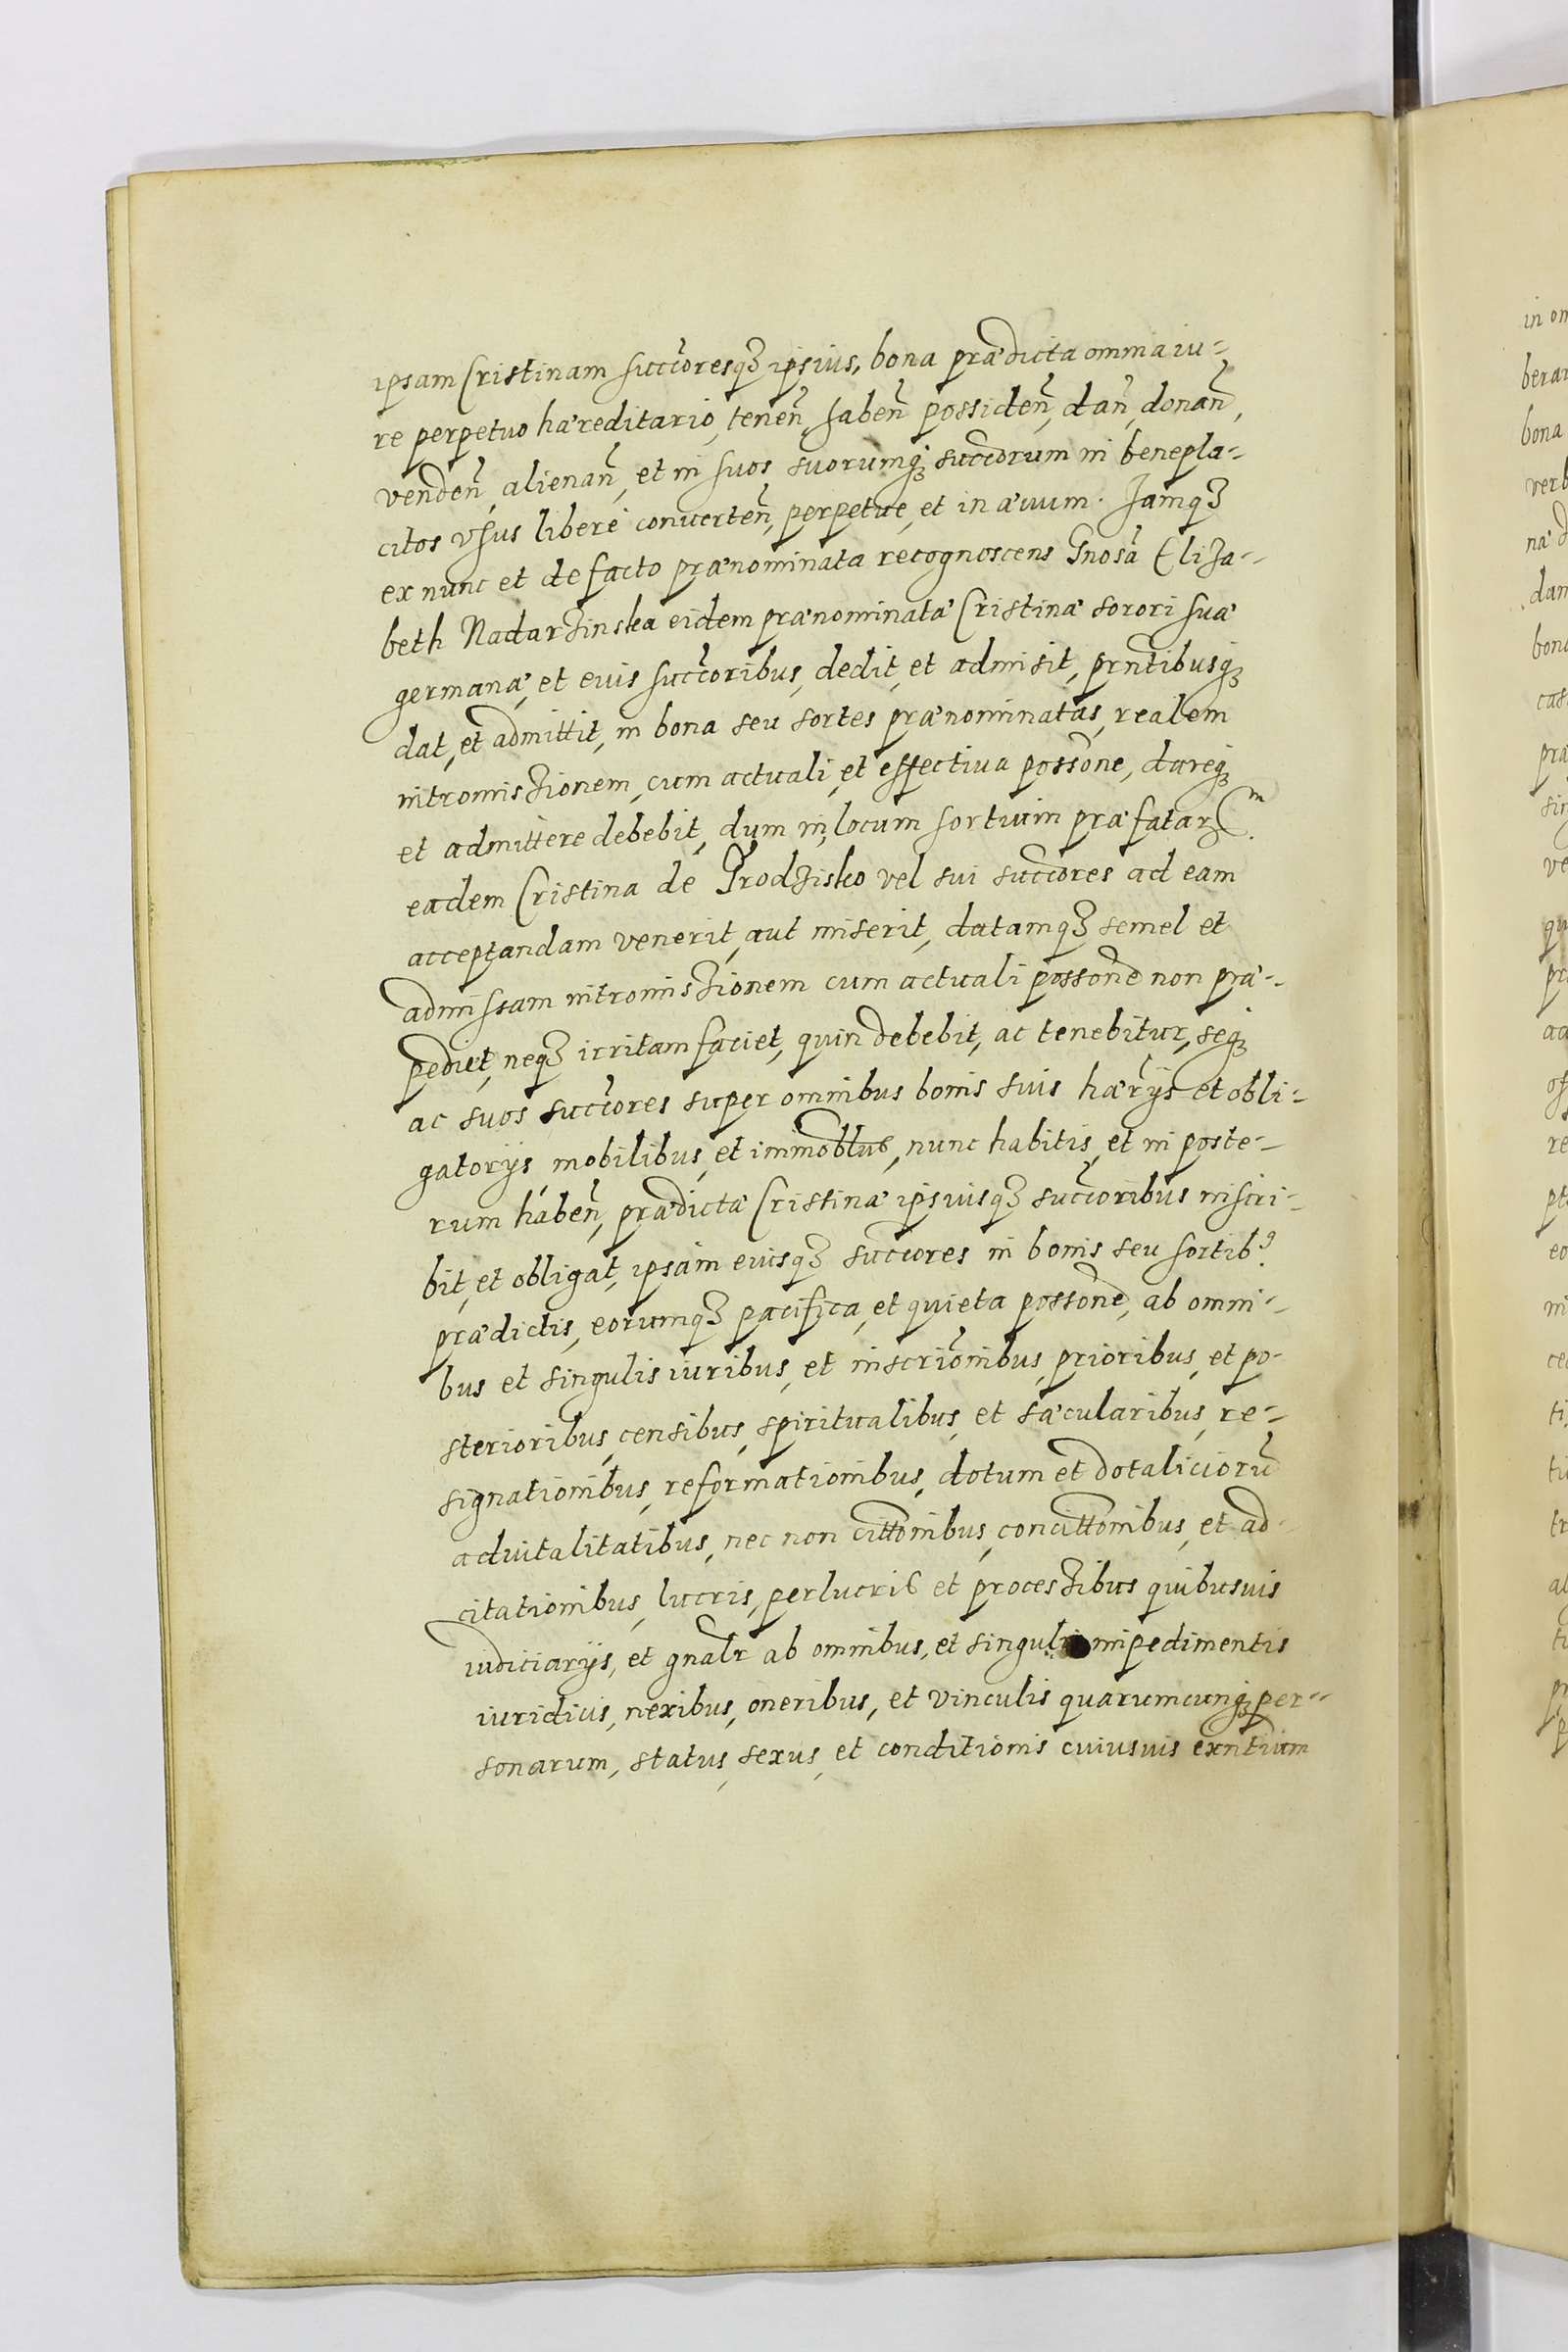 ipsam Cristinam succ̃oresq₃ ipsius, bona prædicta omnia iu-
re perpetuo hæreditario, teneñ, habeñ possideñ, dañ, donañ,
vendeñ, alienañ, et in suos suorumq₃ succõrum in benepla-
citos vsus liberè conuerteñ, perpetue, et in æuum. Iamq₃
ex nunc et de facto prænominata recognoscens Gnosã Eliza-
beth Nadarzinska eidem prænominatæ Cristinæ sorori suæ
germanæ, et eius succ̃oribus, dedit, et admisit, prñtibusq₃
dat, et admittit, in bona seu sortes prænominatas, realem
intromissionem, cum actuali, et effectiua possõne, dareq₃
et admittere debebit, dum in, locum sortium præfatarʒ
eadem Cristina de Grodzisko vel sui succõres ad eam
acceptandam venerit, aut miserit, datamq₃ semel et
admissam intromissionem cum actuali possõne non præ-
pediet, neq₃ irritam faciet, quin debebit, ac tenebitur, seq₃
ac suos succ̃ores super omnibus bonis suis hær̃ijs et obli-
gatorijs, mobilibus, et immobl̃us, nunc habitis, et in poste-
rum habeñ, prædictæ Cristinæ ipsiusq₃ succ̃oribus inscri-
bit, et obligat, ipsam eiusq₃ succ̃ores in bonis seu sortib⁹
prædictis, eorumq₃ pacifica, et quieta possõne, ab omni-
bus et singulis iuribus, et inscriõnibus, prioribus, et po-
sterioribus, censibus, spiritualibus, et sæcularibus, re-
signationibus, reformationibus, dotum et dotaliciorũ
aduitalitatibus, nec non cittõnibus, concittõnibus, et ad-
citationibus, lucris, perlucris et processibus quibusuis
iudiciarijs, et gnalr̃ ab omnibus, et singulis impedimentis
iuridicis, nexibus, oneribus, et vinculis quarumcunq₃ per-
sonarum, status, sexus, et conditionis cuiusuis exñtium